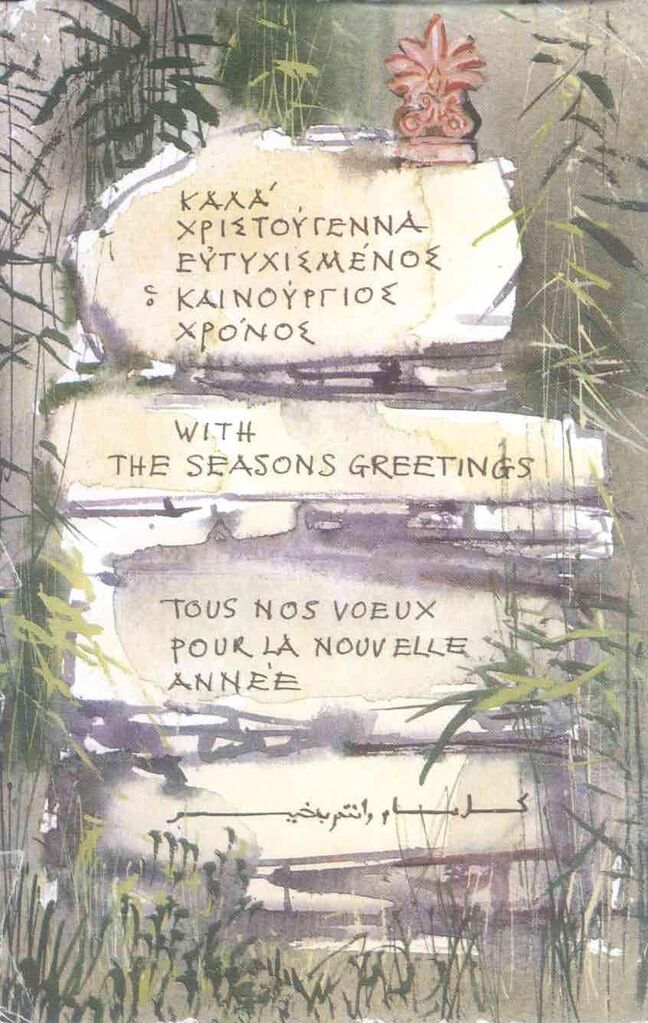 ΚΑΛΆ
ΧΡΙΣΤΟΎΓΕΝΝΑ
ΕΥ̓ΤΥΧΙΣΜΈΝΟΣ
ὁ ΚΑΙΝΟΎΡΓΙΟΣ
ΧΡΌΝΟΣ
WITH
THE SEASONS GREETINGS
TOUS NOS VOEUX
POUR LA NOUVELLE
ANNÉE
كل عام وانتم بخير